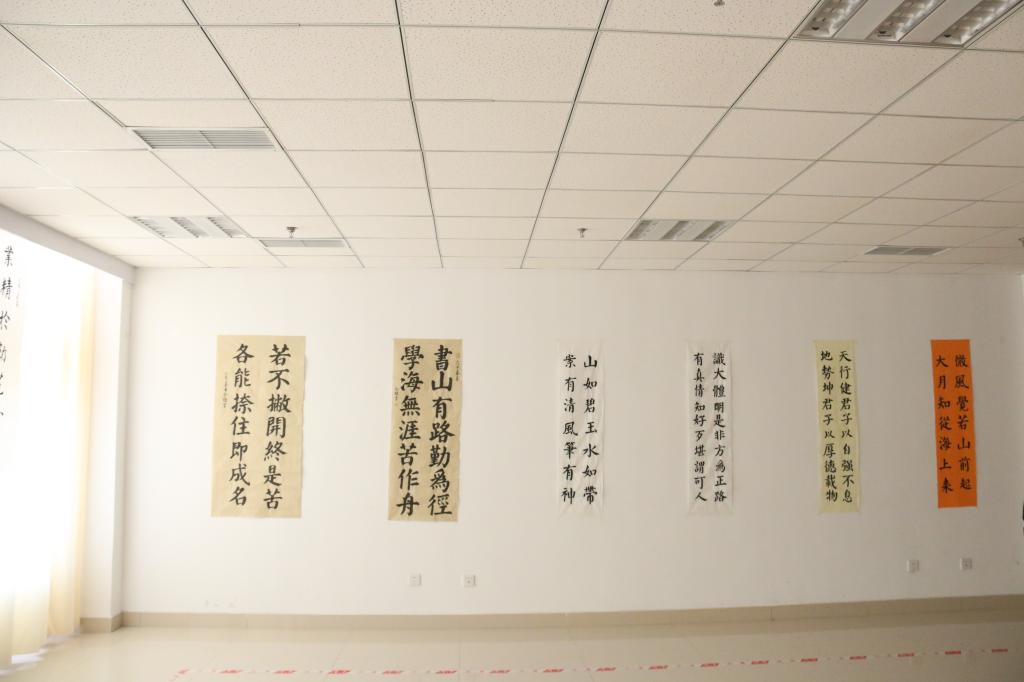 業精於勤
若不撇開終是苦
各能捺住即成名
書山有路勤為徑
學海無涯苦作舟
山如碧玉水如帶
案有清風筆有神
識大體明是非方為正路
有真情知好歹堪謂可人
天行健君子以自强不息
地勢坤君子以厚德載物
微風覺若山前起
大月知從海上來